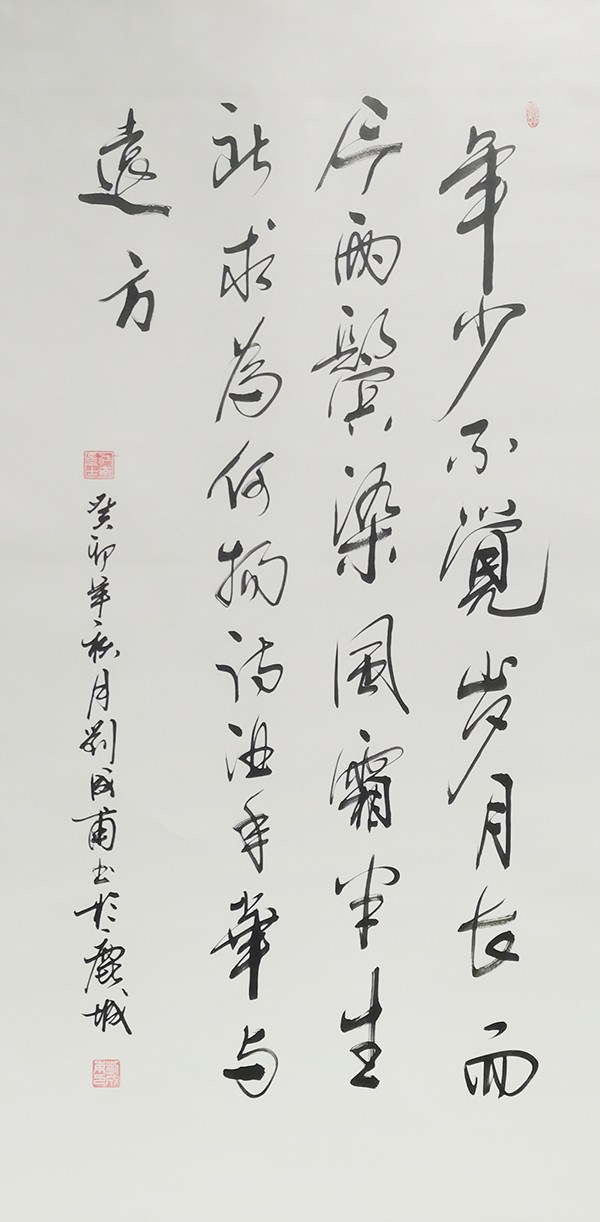 年少不覺岁月长而
今两鬓染风霜半生
所求为何物诗酒年華与
遠方
癸卯年秋月刘成甫书於麗城